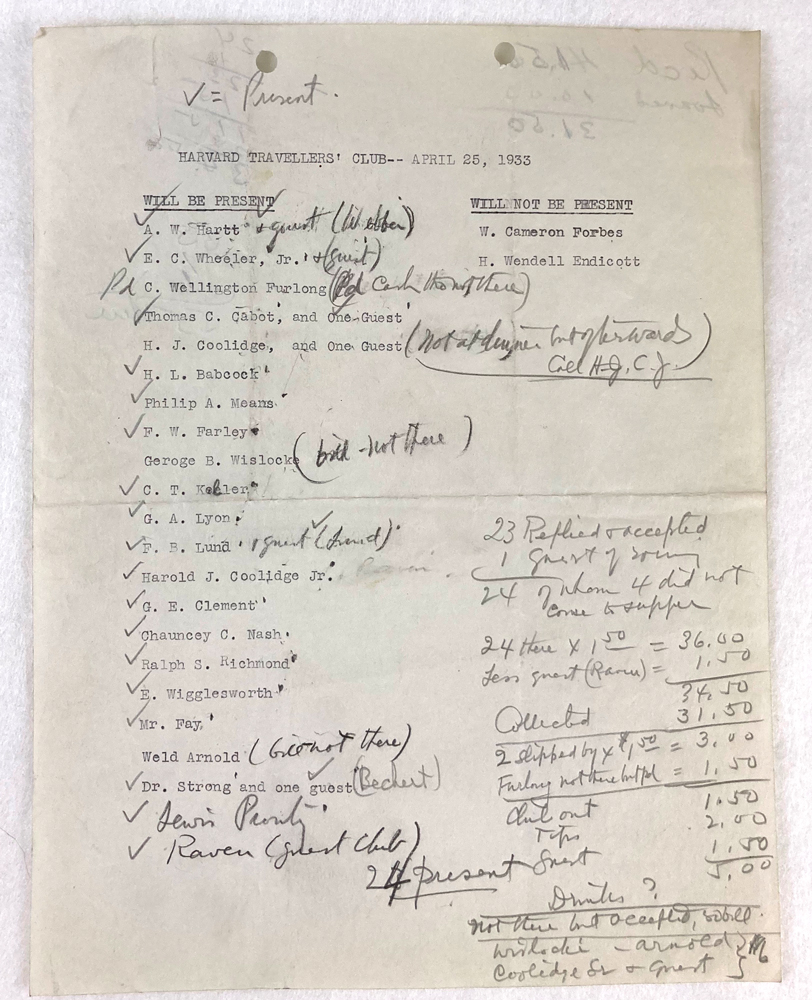 ✓ = Present.
HARVARD TRAVELLERS' CLUB-- APRIL 25, 1933
WILL BE PRESENT
WILL NOT BE PRESENT
A. W. Hartt + guest (Webber)
W. Cameron Forbes
E. C. Wheeler, Jr. + (guest)
H. Wendell Endicott
Pd C. Wellington Furlong (Pd Cash tho not there)
Thomas C. Cabot, and One Guest
H. J. Coolidge, and One Guest (not at dinner but afterwards)
H.J.C.J.
H. L. Babcock
Philip A. Means
F. W. Farley
Geroge B. Wislocke (bill - not there)
C. T. Keller
G. A. Lyon
F. B. Lund 1 guest
Harold J. Coolidge Jr.
G. E. Clement
Chauncey C. Nash
Ralph S. Richmond
E. Wigglesworth
Mr. Fay
Weld Arnold (bill not there)
Dr. Strong and one guest (Bechert)
Lewis
Raven (guest Club)
24 present
23 Replied & accepted
1 guest of
24 of whom 4 did not
come to supper
24 there x 1.50 = 36.00
Less guest (Raven) = 1.50
34.50
Collected 31.50
2 slipped by x $1.50 = 3.00
Furlong not there but pd = 1.50
Club out 1.50
Tips 2.00
Guest 1.50
5.00
Drinks?
not there but accepted, so bill.
Wislocki - Arnold
Coolidge Sr + guest